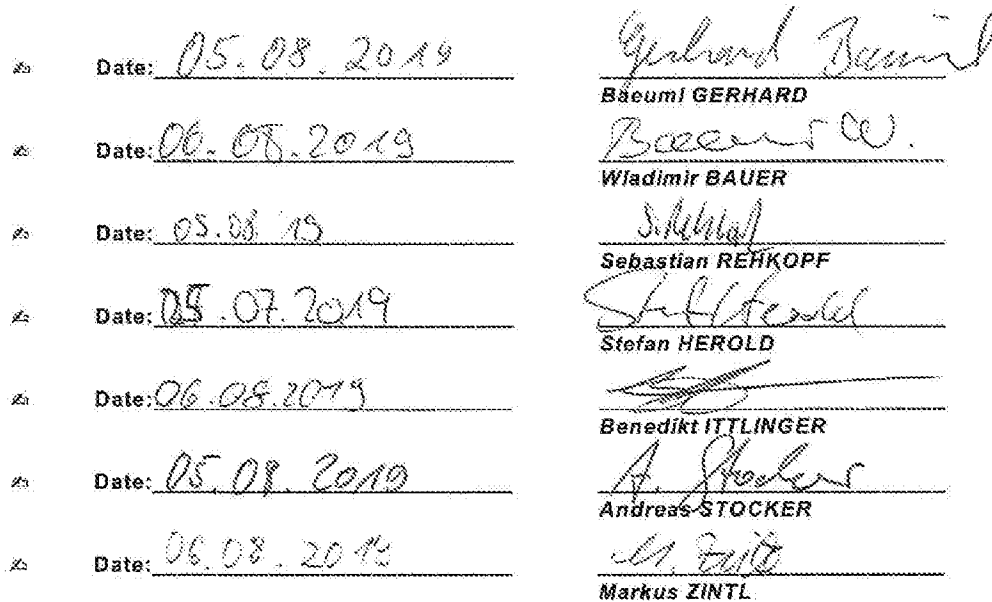 Date: 05.08.2019 Gerhard Baeuml
Baeuml GERHARD
Date: 06.08.2019 Bauer W.
Wladimir BAUER
Date: 05.08.19 S. Rehkopf
Sebastian REHKOPF
Date: 25.07.2019 Stefan Herold
Stefan HEROLD
Date: 06.08.2019
Benedikt ITTLINGER
Date: 05.08.2019 A. Stocker
Andreas STOCKER
Date: 06.08.2019 M. Zintl
Markus ZINTL